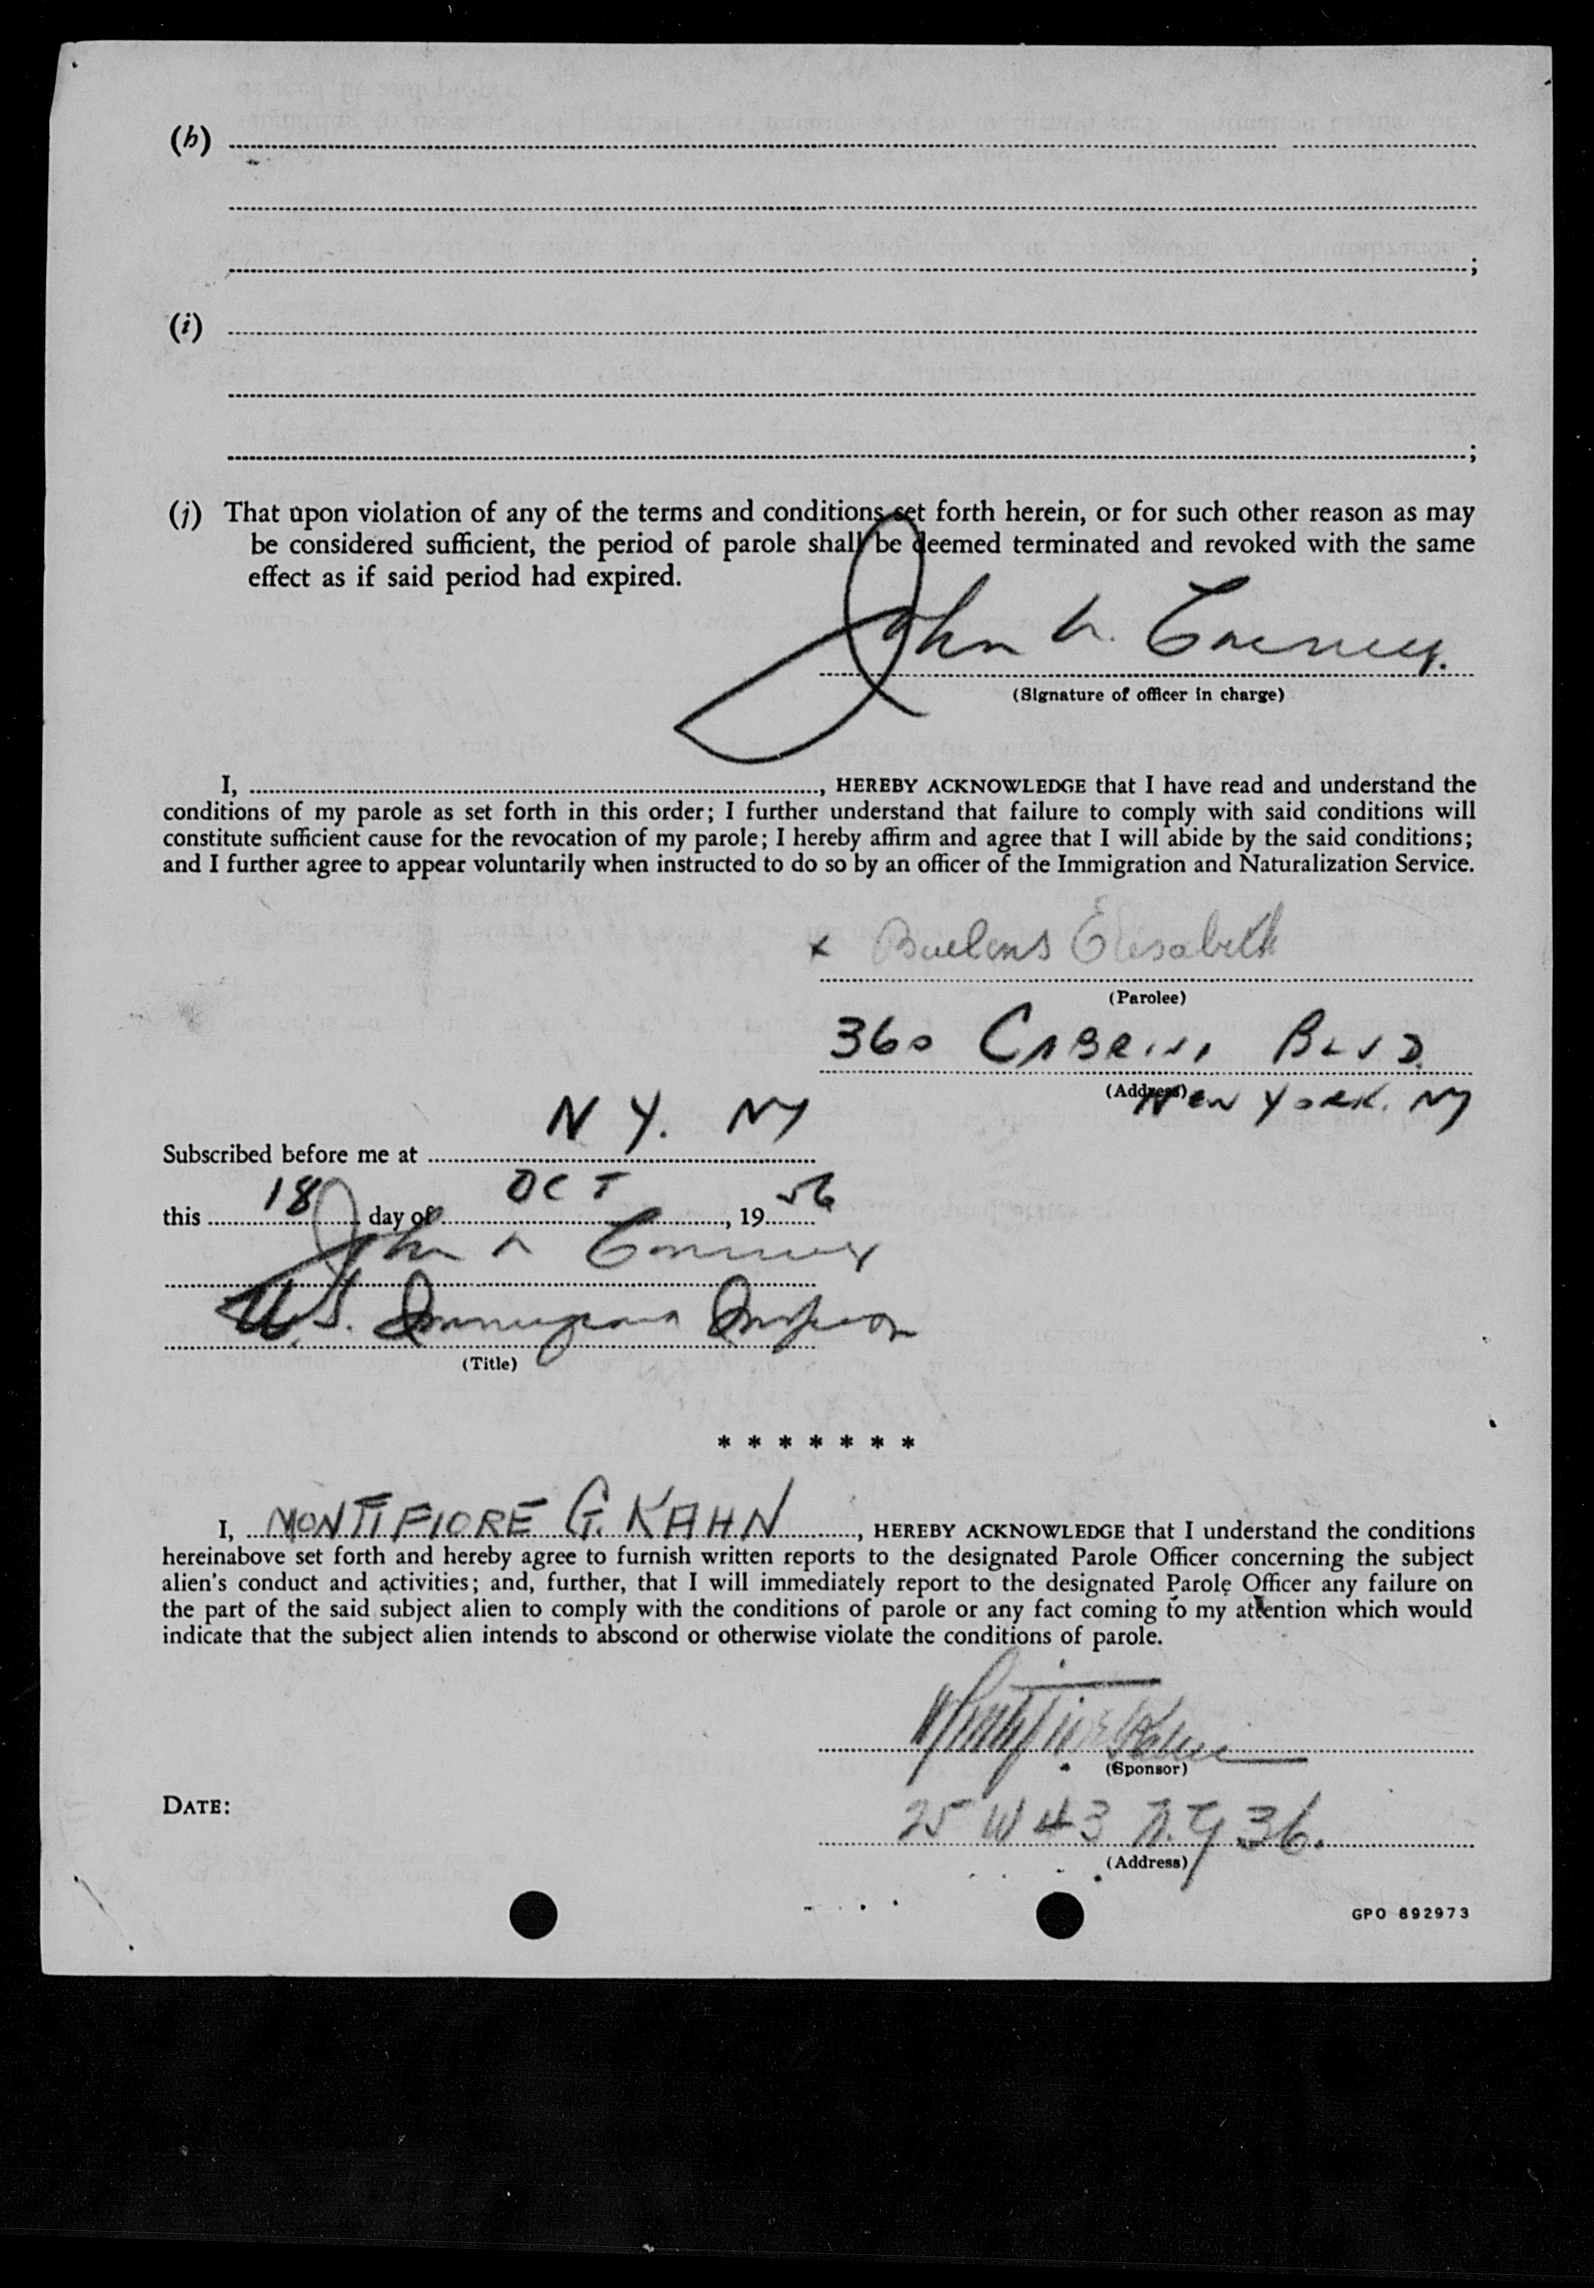 (h)
;
(i)
;
(j) That upon violation of any of the terms and conditions set forth herein, or for such other reason as may
be considered sufficient, the period of parole shall be deemed terminated and revoked with the same
effect as if said period had expired.
John
(Signature of officer in charge)
I, , HEREBY ACKNOWLEDGE that I have read and understand the
conditions of my parole as set forth in this order; I further understand that failure to comply with said conditions will
constitute sufficient cause for the revocation of my parole; I hereby affirm and agree that I will abide by the said conditions;
and I further agree to appear voluntarily when instructed to do so by an officer of the Immigration and Naturalization Service.
x Buelens Elisabeth
(Parolee)
360 CABRINI BLVD.
(Address) NEW YORK. NY
N Y. NY
Subscribed before me at
this 18 day of OCT , 19 56
John
U.S. Immigrant Inspector
(Title)
* * * * * * *
I, MONTIFIORE G. KAHN , HEREBY ACKNOWLEDGE that I understand the conditions
hereinabove set forth and hereby agree to furnish written reports to the designated Parole Officer concerning the subject
alien's conduct and activities; and, further, that I will immediately report to the designated Parole Officer any failure on
the part of the said subject alien to comply with the conditions of parole or any fact coming to my attention which would
indicate that the subject alien intends to abscond or otherwise violate the conditions of parole.
(Sponsor)
DATE:
25 W 43 N.Y 36.
(Address)
GPO 892973